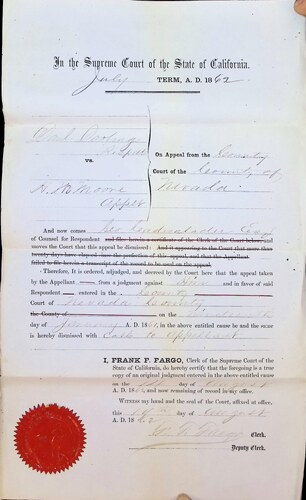 In the Supreme Court of the State of California.
July TERM, A. D. 1862
Respdt
vs. On Appeal from the County
Court of the County of
Moore Nevada
Applt
And now comes Geo Cadwalader Esq
of Counsel for Respondent and files herein a certificate of the Clerk of the Court below, and
moves the Court that this appeal be dismissed: And it appearing to the Court that more than
twenty days have elapsed since the perfection of this appeal, and that the Appellant
failed to file herein a transcript of the record to be used on the appeal:
Therefore, It is ordered, adjudged, and decreed by the Court here that the appeal taken
by the Appellant from a judgment against him and in favor of said
Respondent entered in the County
Court of Nevada County
the County of on the
day of January A. D. 186 , in the above entitled cause be and the same
is hereby dismissed with Costs to Appellant
I, FRANK F. FARGO, Clerk of the Supreme Court of the
State of California, do hereby certify that the foregoing is a true
copy of an original judgment entered in the above entitled cause
on the day of August
A. D. 186 , and now remaining of record in my office.
Witness my hand and the seal of the Court, affixed at office,
this day of August
A. D. 1862
Fargo Clerk.
Deputy Clerk.